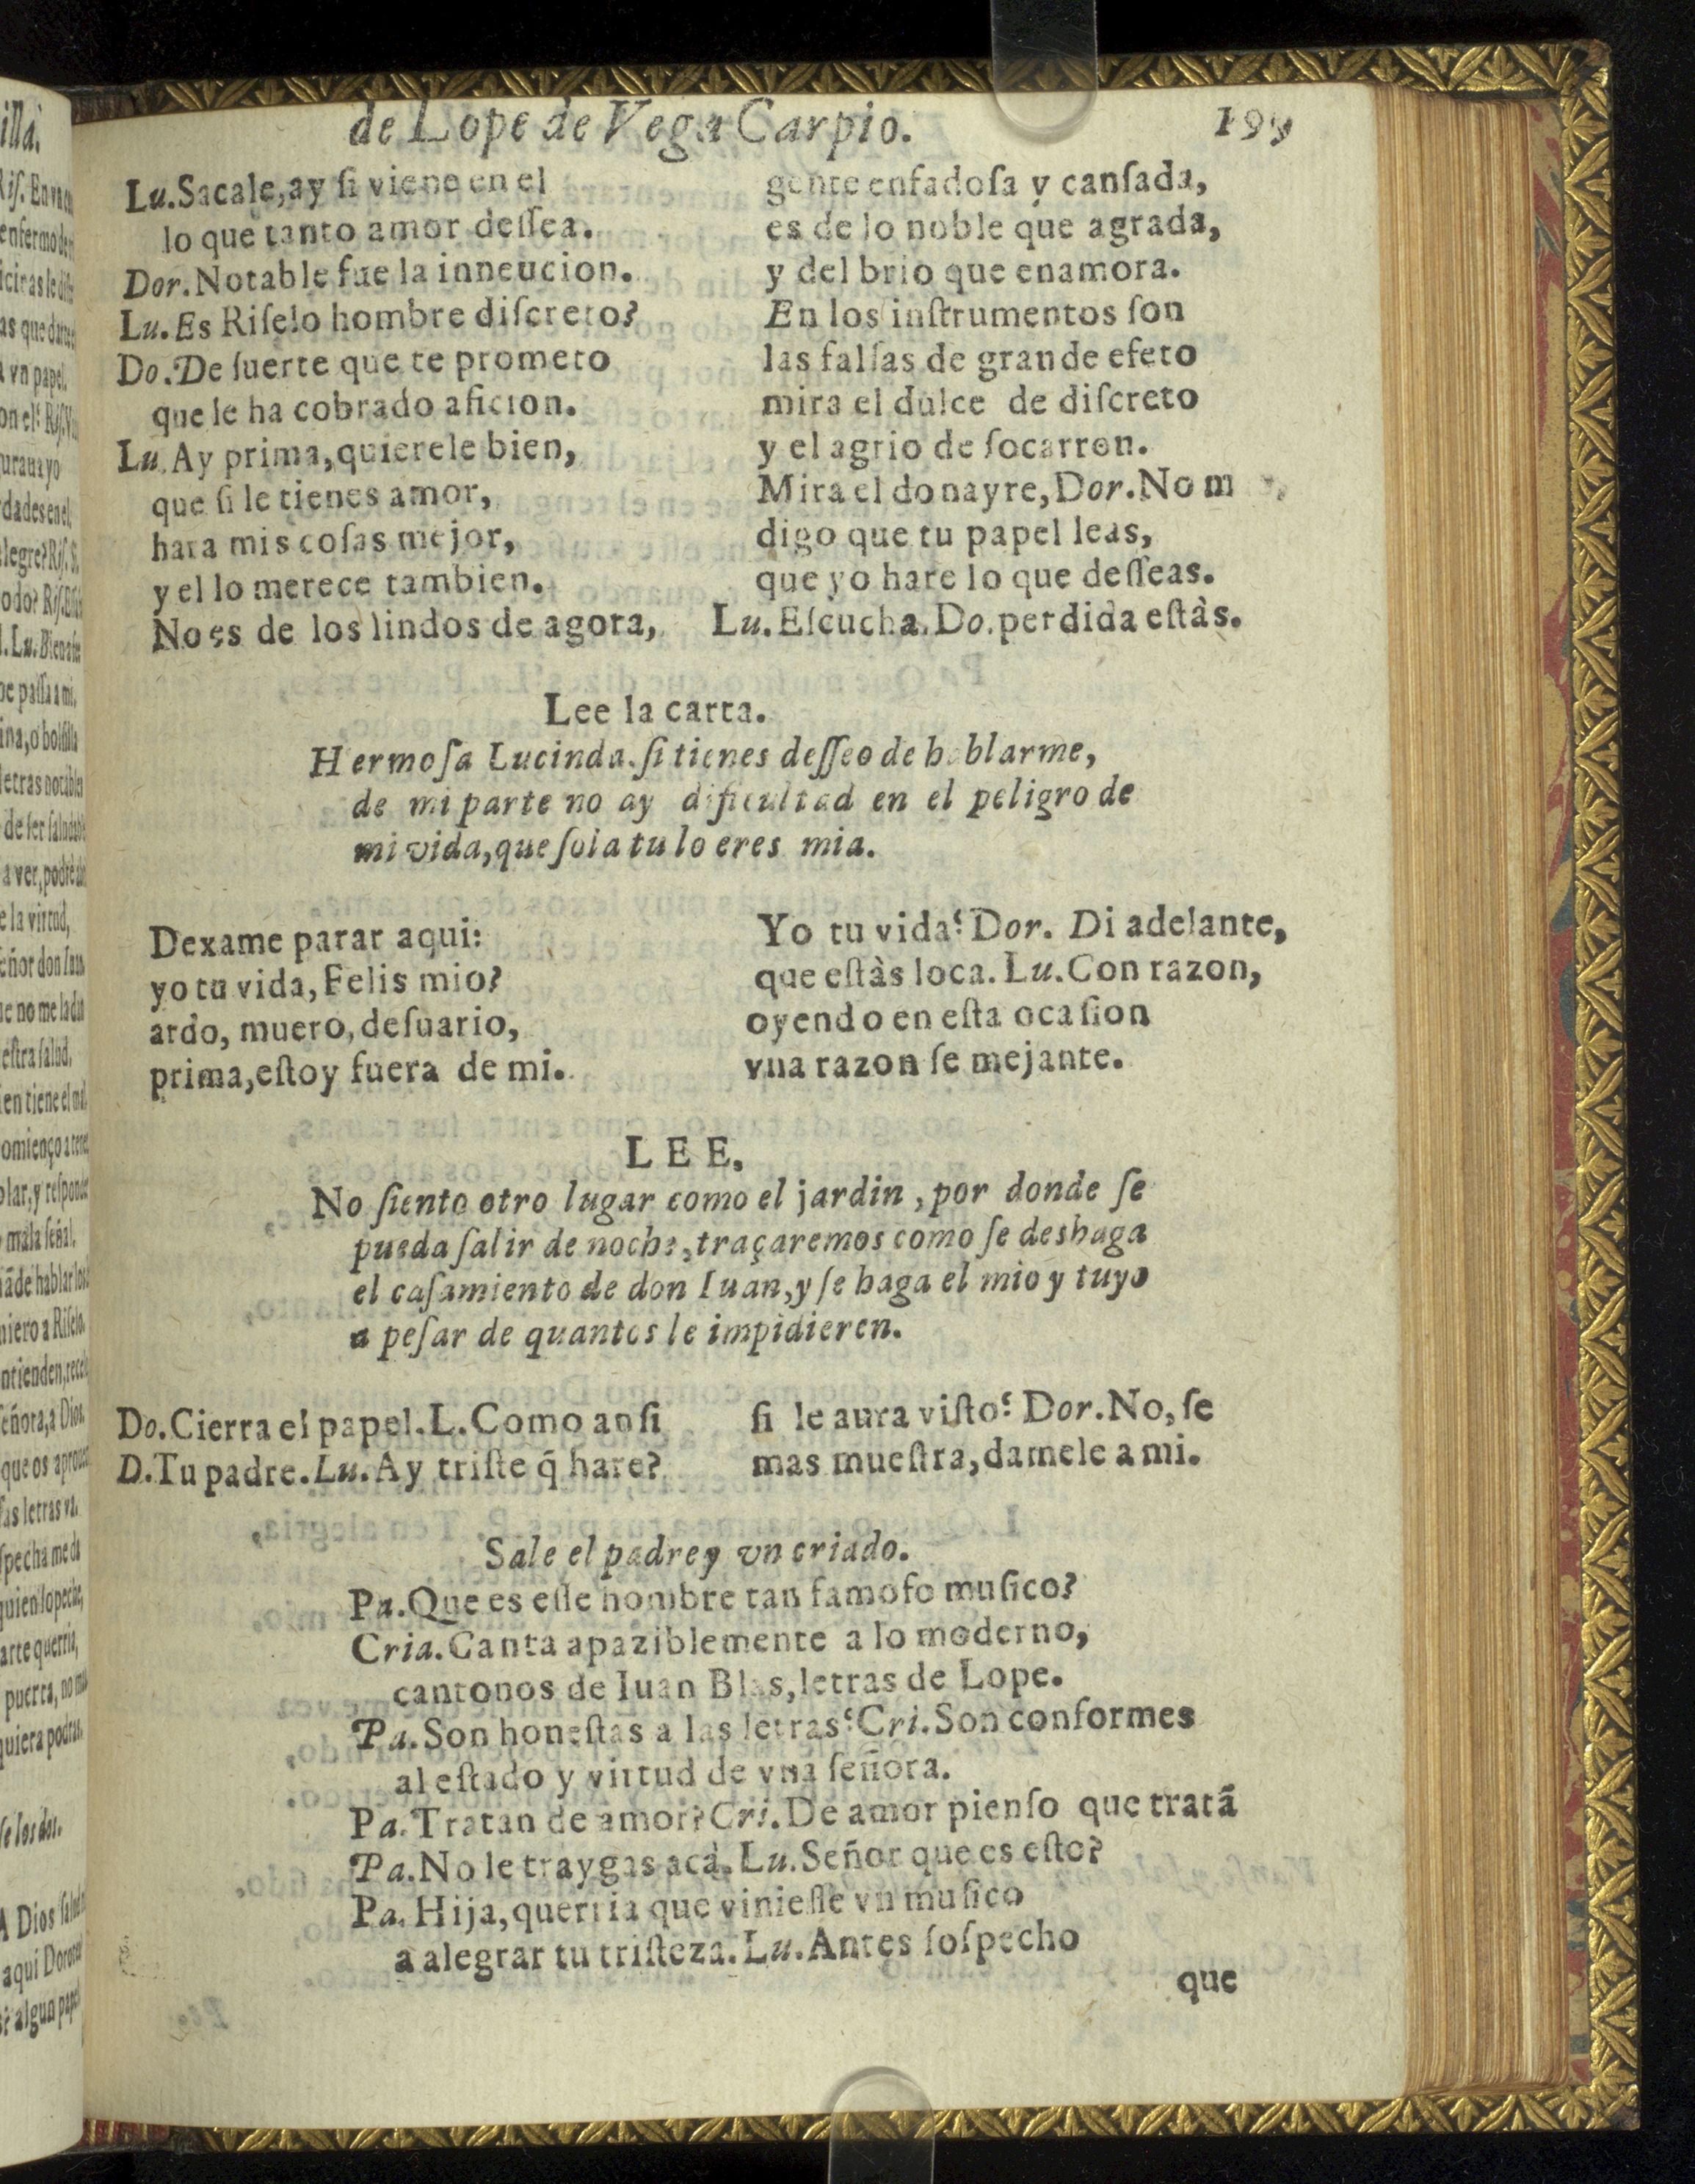 de Lope de Vega Carpio. 199
Lu.Sacale,ay ſi viene en el
lo que tanto amor deſſea.
Dor.Notable fue la inneucion.
Lu.Es Riſelo hombre diſcreto?
Do.De ſuerte que te prometo
que le ha cobrado aficion.
Lu.Ay prima,quierele bien,
que ſi le tienes amor,
hara mis coſas mejor,
y el lo merece tambien.
No es de los lindos de agora,
gente enfadoſa y canſada,
es de lo noble que agrada,
y del brio que enamora.
En los inſtrumentos ſon
las falſas de grande efeto
mira el dulce de diſcreto
y el agrio de ſocarron.
Mira el donayre, Dor.No m
digo que tu papel leas,
que yo hare lo que deſſeas.
Lu.Eſcucha.Do.perdida eſtàs.
Lee la carta.
Hermoſa Lucinda.ſi tienes deſſeo de hablarme,
de mi parte no ay dificultad en el peligro de
mi vida,que ſola tu lo eres mia.
Dexame parar aqui:
yo tu vida, Felis mio?
ardo, muero, deſuario,
prima,eſtoy fuera de mi.
Yo tu vida? Dor. Di adelante,
que eſtàs loca. Lu.Con razon,
oyendo en eſta ocaſion
vna razon ſemejante.
LEE.
No ſiento otro lugar como el jardin , por donde ſe
pueda ſalir de noche,traçaremos como ſe deshaga
el caſamiento de don Iuan,y ſe haga el mio y tuyo
a peſar de quantos le impidieren.
Do.Cierra el papel.L.Como anſi
D.Tu padre.Lu.Ay triſte q̃ hare?
ſi le aura viſto? Dor.No, ſe
mas mueſtra, damele a mi.
Sale el padre y vn criado.
Pa.Que es eſſe hombre tan famoſo muſico?
Cria.Canta apaziblemente a lo moderno,
cantonos de Iuan Blas,letras de Lope.
Pa.Son honeſtas a las letras?Cri.Son conformes
al eſtado y virtud de vna ſeñora.
Pa.Tratan de amor?Cri.De amor pienſo que tratã
Pa.No le traygas acà.Lu.Señor que es eſto?
Pa.Hija,querria que vinieſſe vn muſico
a alegrar tu triſteza.Lu.Antes ſoſpecho
que